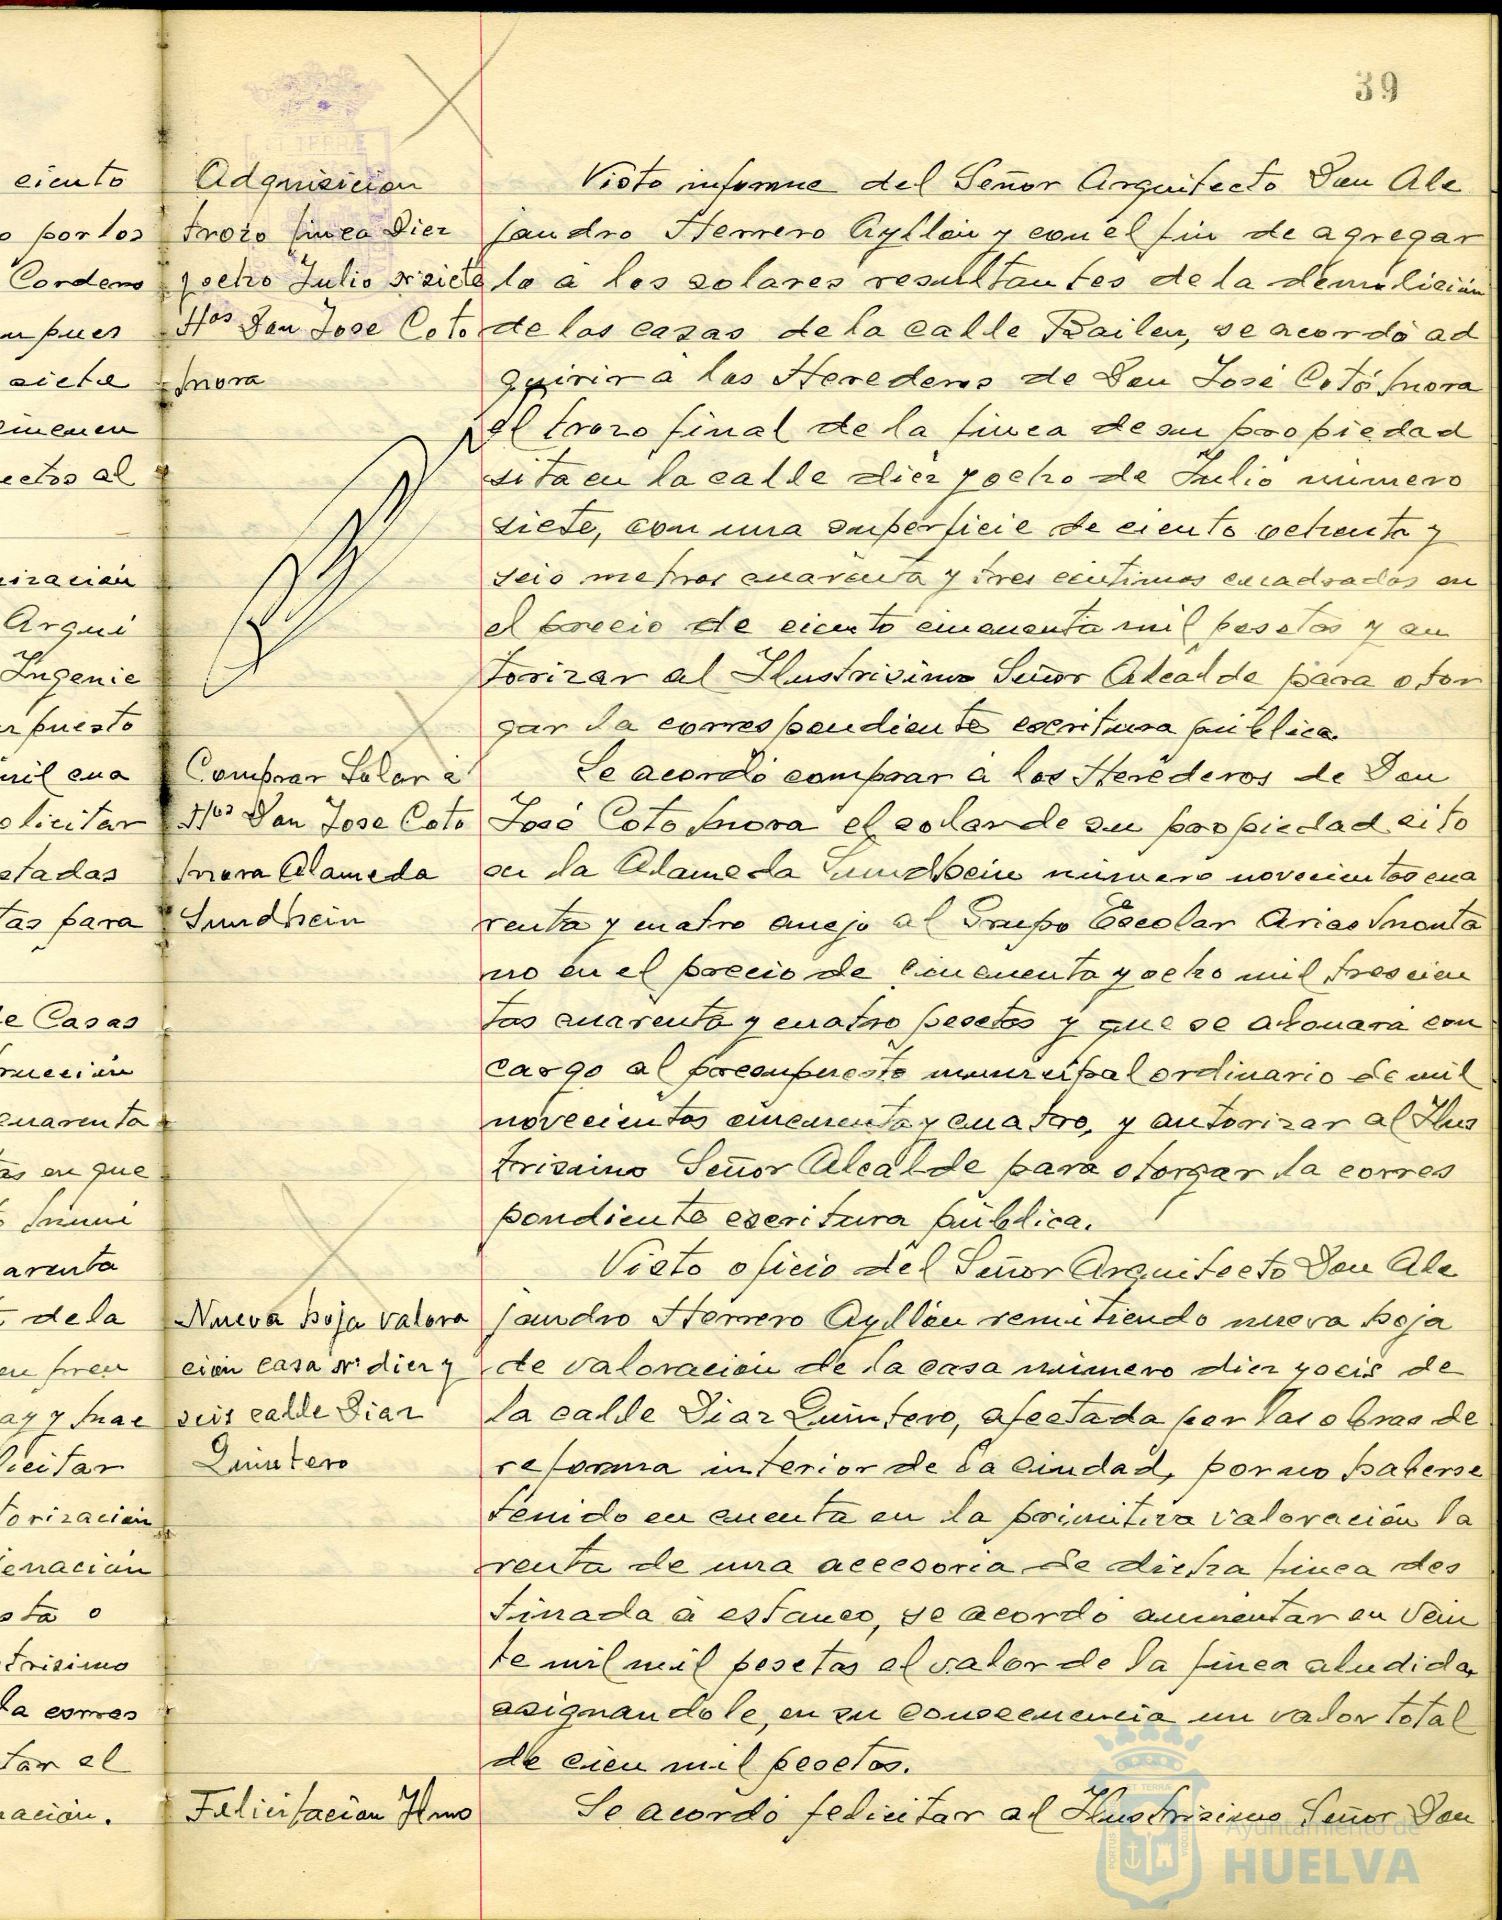 39
eiento
o por los
Cordero
n pues
siete
cincuen
ectos al
nización
Arqui
Ingenie
puesto
mil cua
olicitar
etadas
tas para
e Casas
rucción
cuarenta
tas en que
o Muni
arenta
t de la
en pren
ay y Mae
licitar
torización
enación
sta o
trisimo
la corres
tar el
nación.
Adquisicion
trozo finca Diez
y ocho Julio nº siete
Hos Don Jose Coto
Mora
Visto informe del Señor Arquitecto Don Ale
jandro Herrero Ayllón y con el fin de agregar
lo á los solares resultantes de la demolición
de las casas de la calle Bailen, se acordó ad
quirir á los Herederos de Don José Cotó Mora
el trozo final de la finca de su propiedad
sita en la calle diez y ocho de Julio número
siete, con una superficie de ciento ochenta y
seis metros cuarenta y tres centimos cuadrados en
el precio de ciento cincuenta mil pesetas y au
torizar al Ilustrisimo Señor Alcalde para otor
gar la correspondiente escritura pública.
Comprar Solar á
Hos Don Jose Coto
Mora Alameda
Sundhein
Se acordó comprar á los Herederos de Don
José Coto Mora el solar de su propiedad sito
en la Alameda Sundhein número novecientos cua
renta y cuatro anejo al Grupo Escolar Arias Monta
no en el precio de cincuenta y ocho mil trescien
tas cuarenta y cuatro pesetas y que se abonará con
cargo al presupuesto municipal ordinario de mil
novecientos cincuenta y cuatro, y autorizar al Ilus
trisimo Señor Alcalde para otorgar la corres
pondiente escritura pública.
Nueva hoja valora
ción casa nº diez y
seis calle Diaz
Quintero
Visto oficio del Señor Arquitecto Don Ale
jandro Herrero Ayllón remitiendo nueva hoja
de valoración de la casa número diez y seis de
la calle Diaz Quintero, afectada por las obras de
reforma interior de la Ciudad, por no haberse
tenido en cuenta en la primitiva valoración la
renta de una accesoria de dicha finca des
tinada á estanco, se acordó aumentar en vein
te mil mil pesetas el valor de la finca aludida,
asignandole, en su consecuencia un valor total
de cien mil pesetas.
Felicitacion Ilmo
Se acordó felicitar al Ilustrisimo Señor Don
Ayuntamiento de
HUELVA